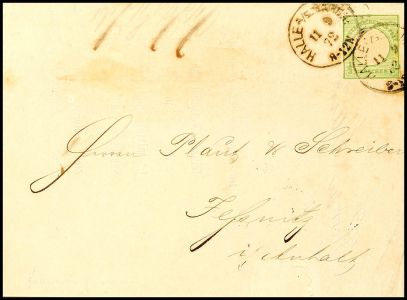 HALLE A/S.
11 9
72
8-12N
HALLE A/S.
11
Herren Plaut & Schreiber
Jeßnitz
i/Anhalt